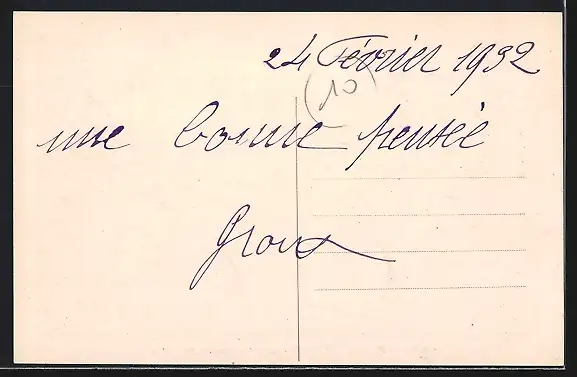 24 Février 1932
(10)
une bonne pensée
Groux